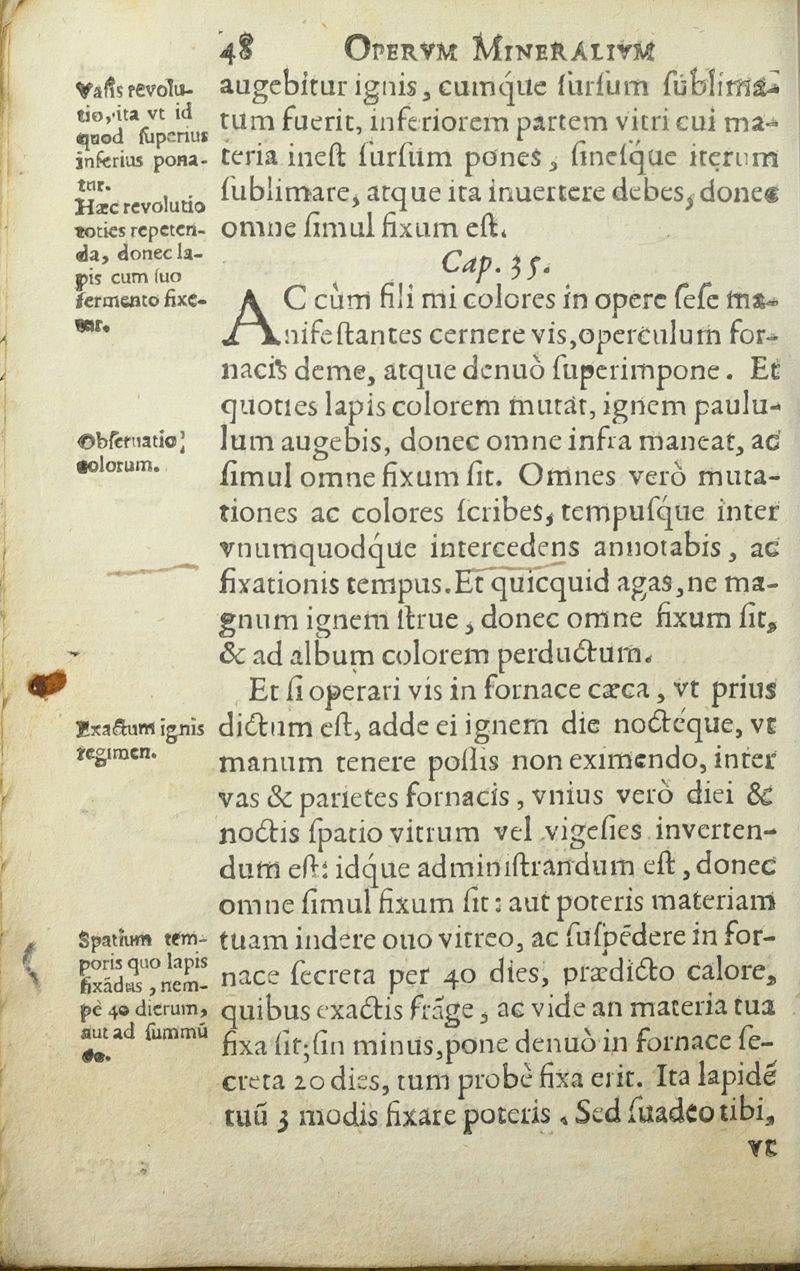 48 OPERVM MINERALIVM
Vasis revolu-
tio, ita vt id
quod superius
inferius pona-
tur.
Hæc revolutio
toties repeten-
da, donec la-
pis cum suo
fermento fixe-
tur.
augebitur ignis, cumq́ue sursum sublima-
tum fuerit, inferiorem partem vitri cui ma-
teria inest sursum pones, sinesq́ue iterum
sublimare, atque ita inuertere debes, donec
omne simul fixum est.
Cap. 35.
AC cùm fili mi colores in opere sese ma-
nifestantes cernere vis, operculum for-
nacis deme, atque denuò superimpone. Et
quoties lapis colorem mutat, ignem paulu-
Obseruatio
colorum.
lum augebis, donec omne infra maneat, ac
simul omne fixum sit. Omnes verò muta-
tiones ac colores scribes, tempusq́ue inter
vnumquodq́ue intercedens annotabis, ac
fixationis tempus. Et quicquid agas, ne ma-
gnum ignem strue, donec omne fixum sit,
& ad album colorem perductum.
Et si operari vis in fornace cæca, vt prius
Exactum ignis
regimen.
dictum est, adde ei ignem die noctéque, vt
manum tenere possis non eximendo, inter
vas & parietes fornacis, vnius verò diei &
noctis spatio vitrum vel vigesies inverten-
dum est: idq́ue administrandum est, donec
omne simul fixum sit: aut poteris materiam
Spatium tem-
poris quo lapis
fixādus, nem-
pe 40 dierum,
aut ad summū
60.
tuam indere ouo vitreo, ac suspēdere in for-
nace secreta per 40 dies, prædicto calore,
quibus exactis frāge, ac vide an materia tua
fixa sit; sin minus, pone denuò in fornace se-
creta 20 dies, tum probè fixa erit. Ita lapidē
tuū 3 modis fixare poteris. Sed suadeo tibi,
vt